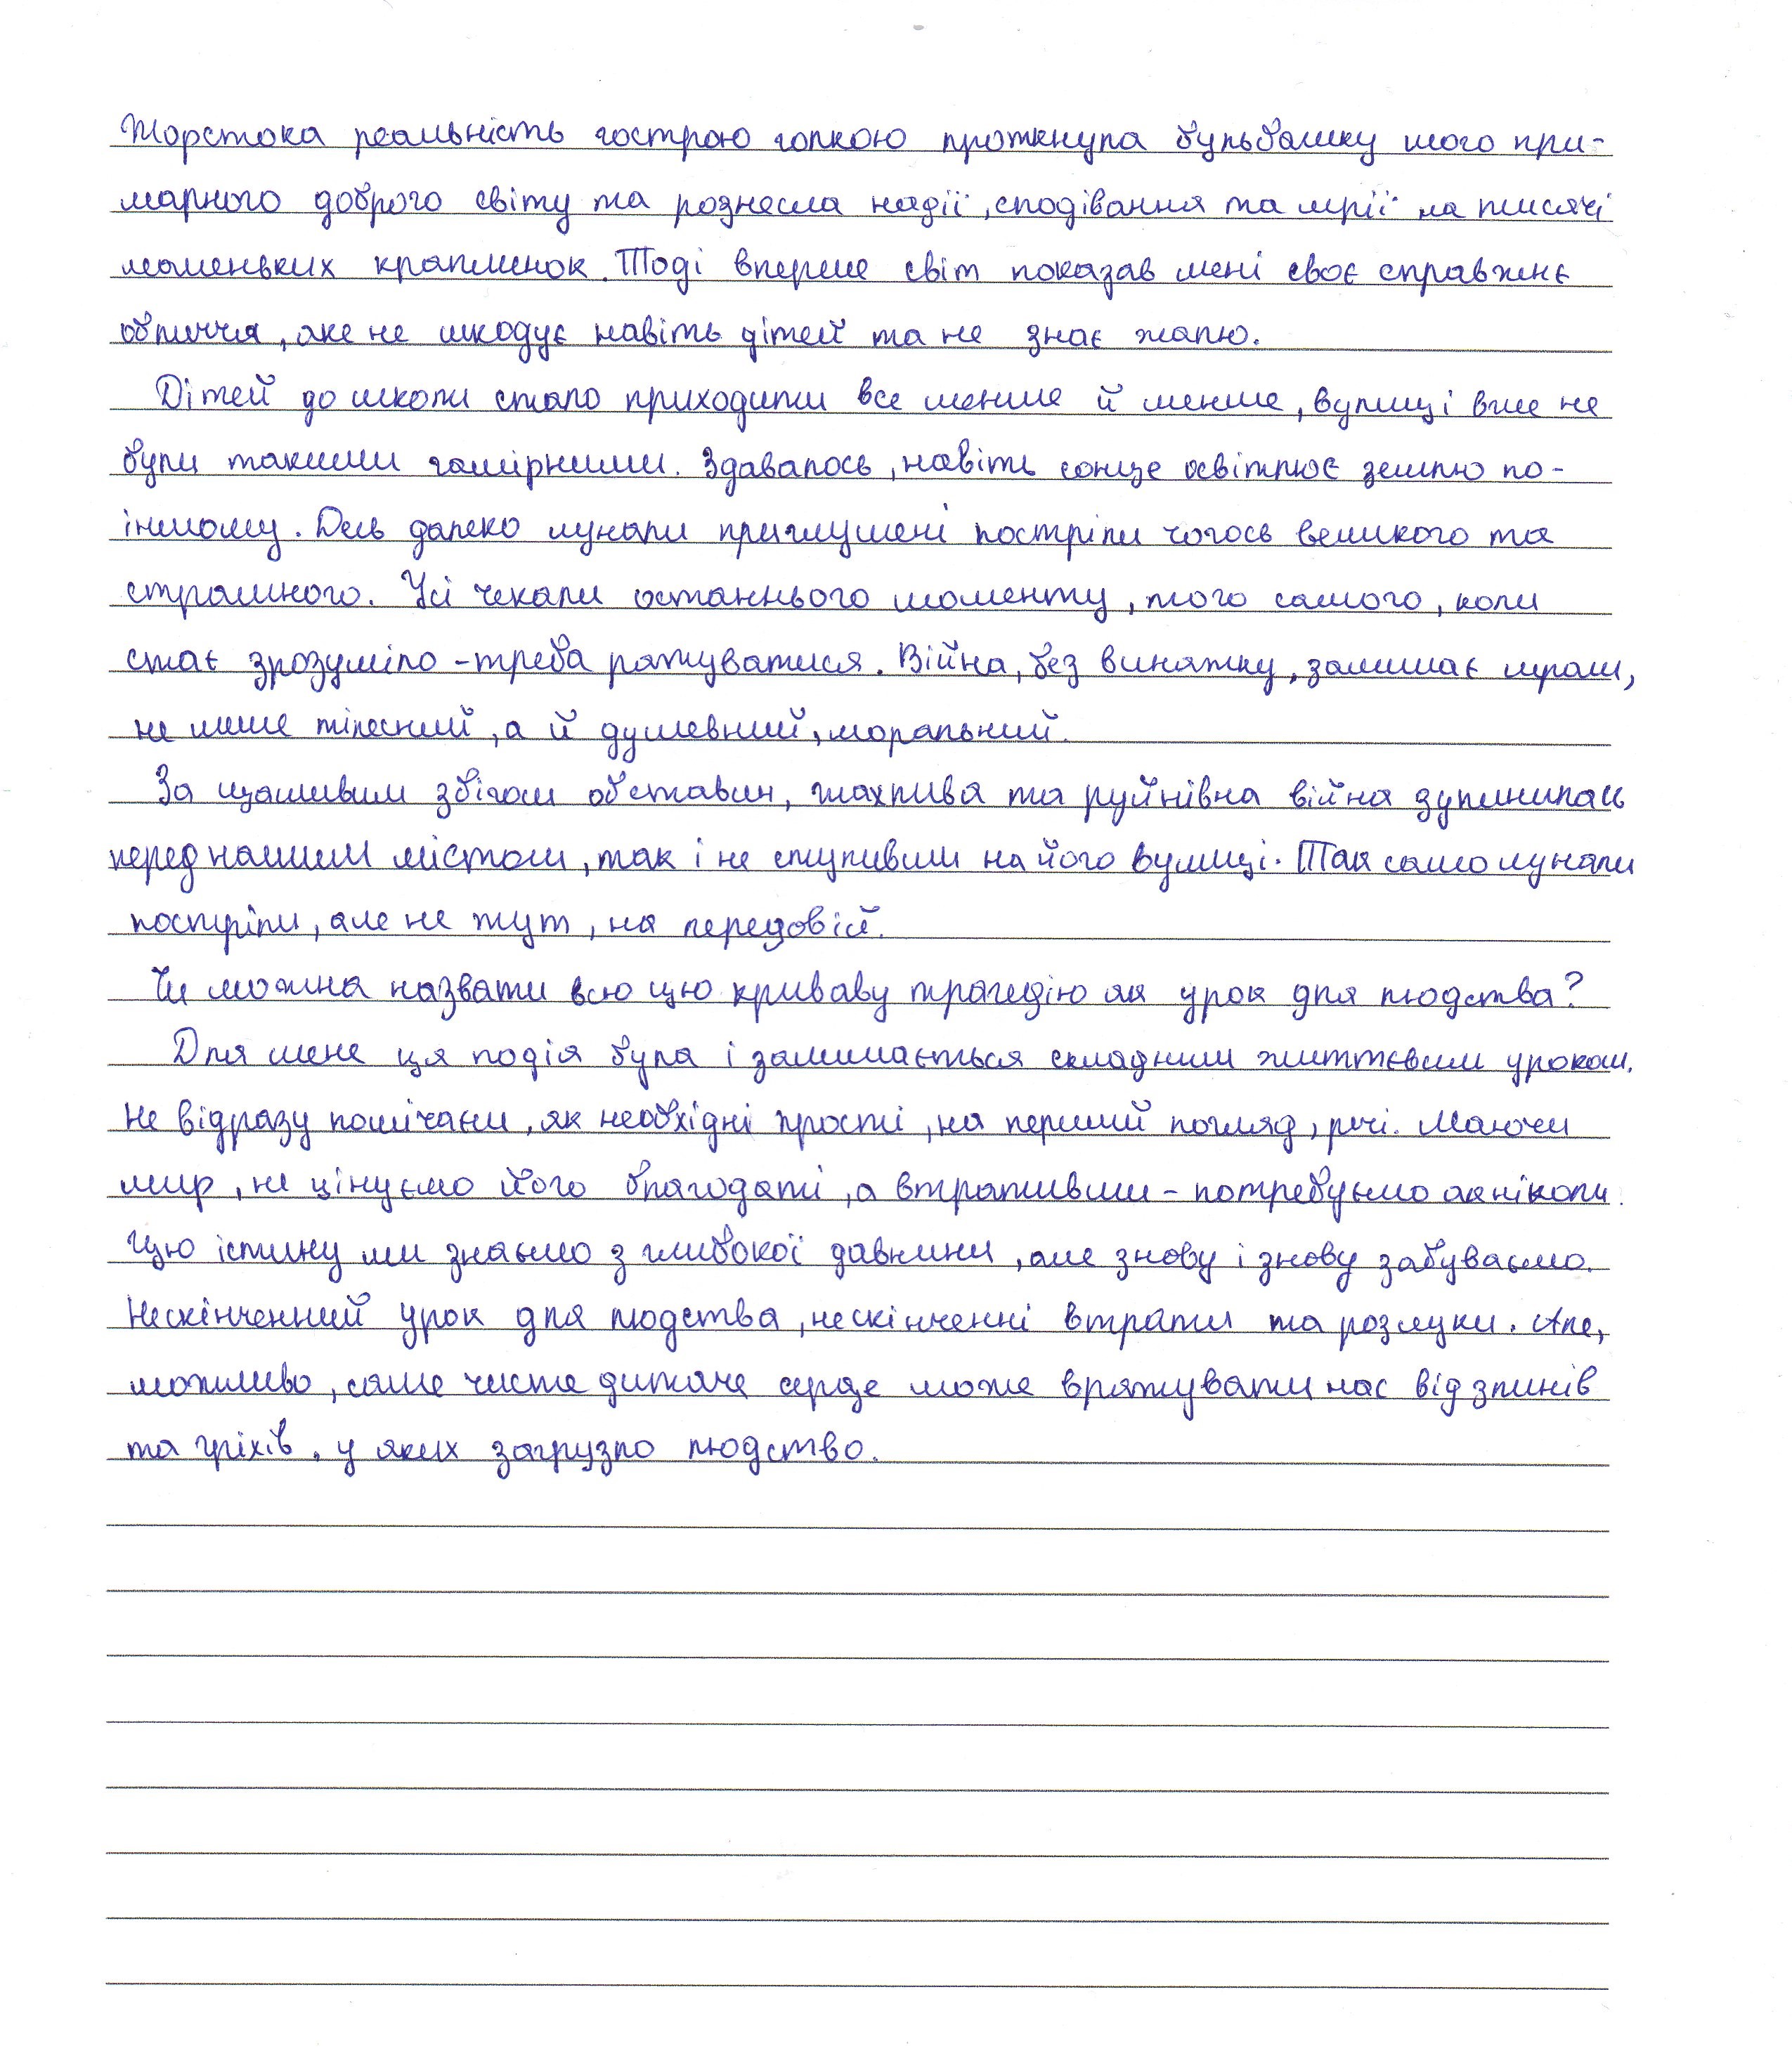 Жорстока реальність гострою голкою проткнула бульбашку мого при-
марного доброго світу та рознесла надії, сподівання та мрії на тисячі
маленьких краплинок. Тоді вперше світ показав мені своє справжнє
обличчя, яке не шкодує навіть дітей та не знає жалю.
Дітей до школи стало приходити все менше й менше, вулиці вже не
були такими гамірними. Здавалось, навіть сонце освітлює землю по-
іншому. Десь далеко лунали приглушені постріли чогось великого та
страшного. Усі чекали останнього моменту, того самого, коли
стає зрозуміло - треба рятуватися. Війна, без винятку, залишає шрам,
не лише тілесний, а й душевний, моральний.
За щасливим збігом обставин, жахлива та руйнівна війна зупинилась
перед нашим містом, так і не ступивши на його вулиці. Так само лунали
постріли, але не тут, на передовій.
Чи можна назвати всю цю криваву трагедію як урок для людства?
Для мене ця подія була і залишається складним життєвим уроком.
Не відразу помічаєш, як необхідні прості, на перший погляд, речі. Маючи
мир, не цінуємо його благодаті, а втративши - потребуємо як ніколи.
Цю істину ми знаємо з глибокої давнини, але знову і знову забуваємо.
Нескінченний урок для людства, нескінченні втрати та розлуки. Але,
можливо, саме чисте дитяче серце може врятувати нас від злинів
та гріхів, у яких загрузло людство.